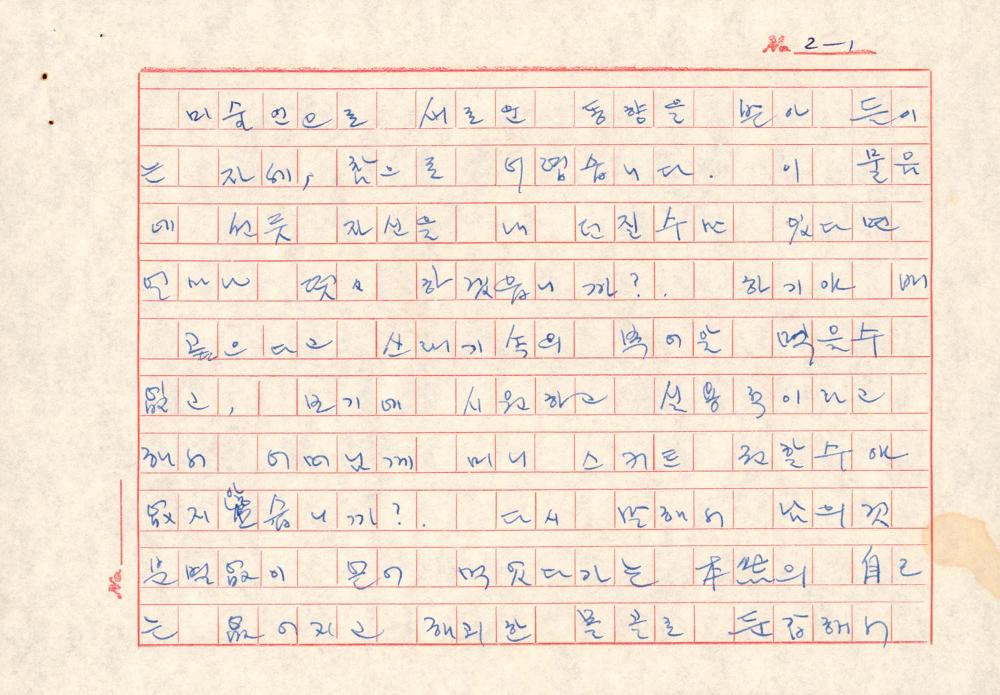 No. 2-1
미술인으로 새로운 동향을 받아 들이
는 자세, 참으로 어렵습니다. 이 물음
에 선듯 자신을 내 던질수만 있다면
얼마나 떳떳 하겠읍니까?. 하기야 배
곺으다고 산내기 속의 복어알 먹을수
없고, 보기에 시원하고 실용적이라고
해서 어머님께 미니 스커트 권할수야
없지 않습니까?. 다시 말해서 남의 것
분별없이 뜯어 먹었다가는 本然의 自己
는 없어지고 해괴한 몰골로 둔갑해서
No.